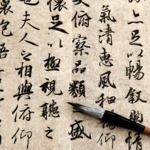 亦足以暢叙幽
氣清惠風和暢仰
俯察品類盛
懷足以極視聽之
夫人之相與俯仰